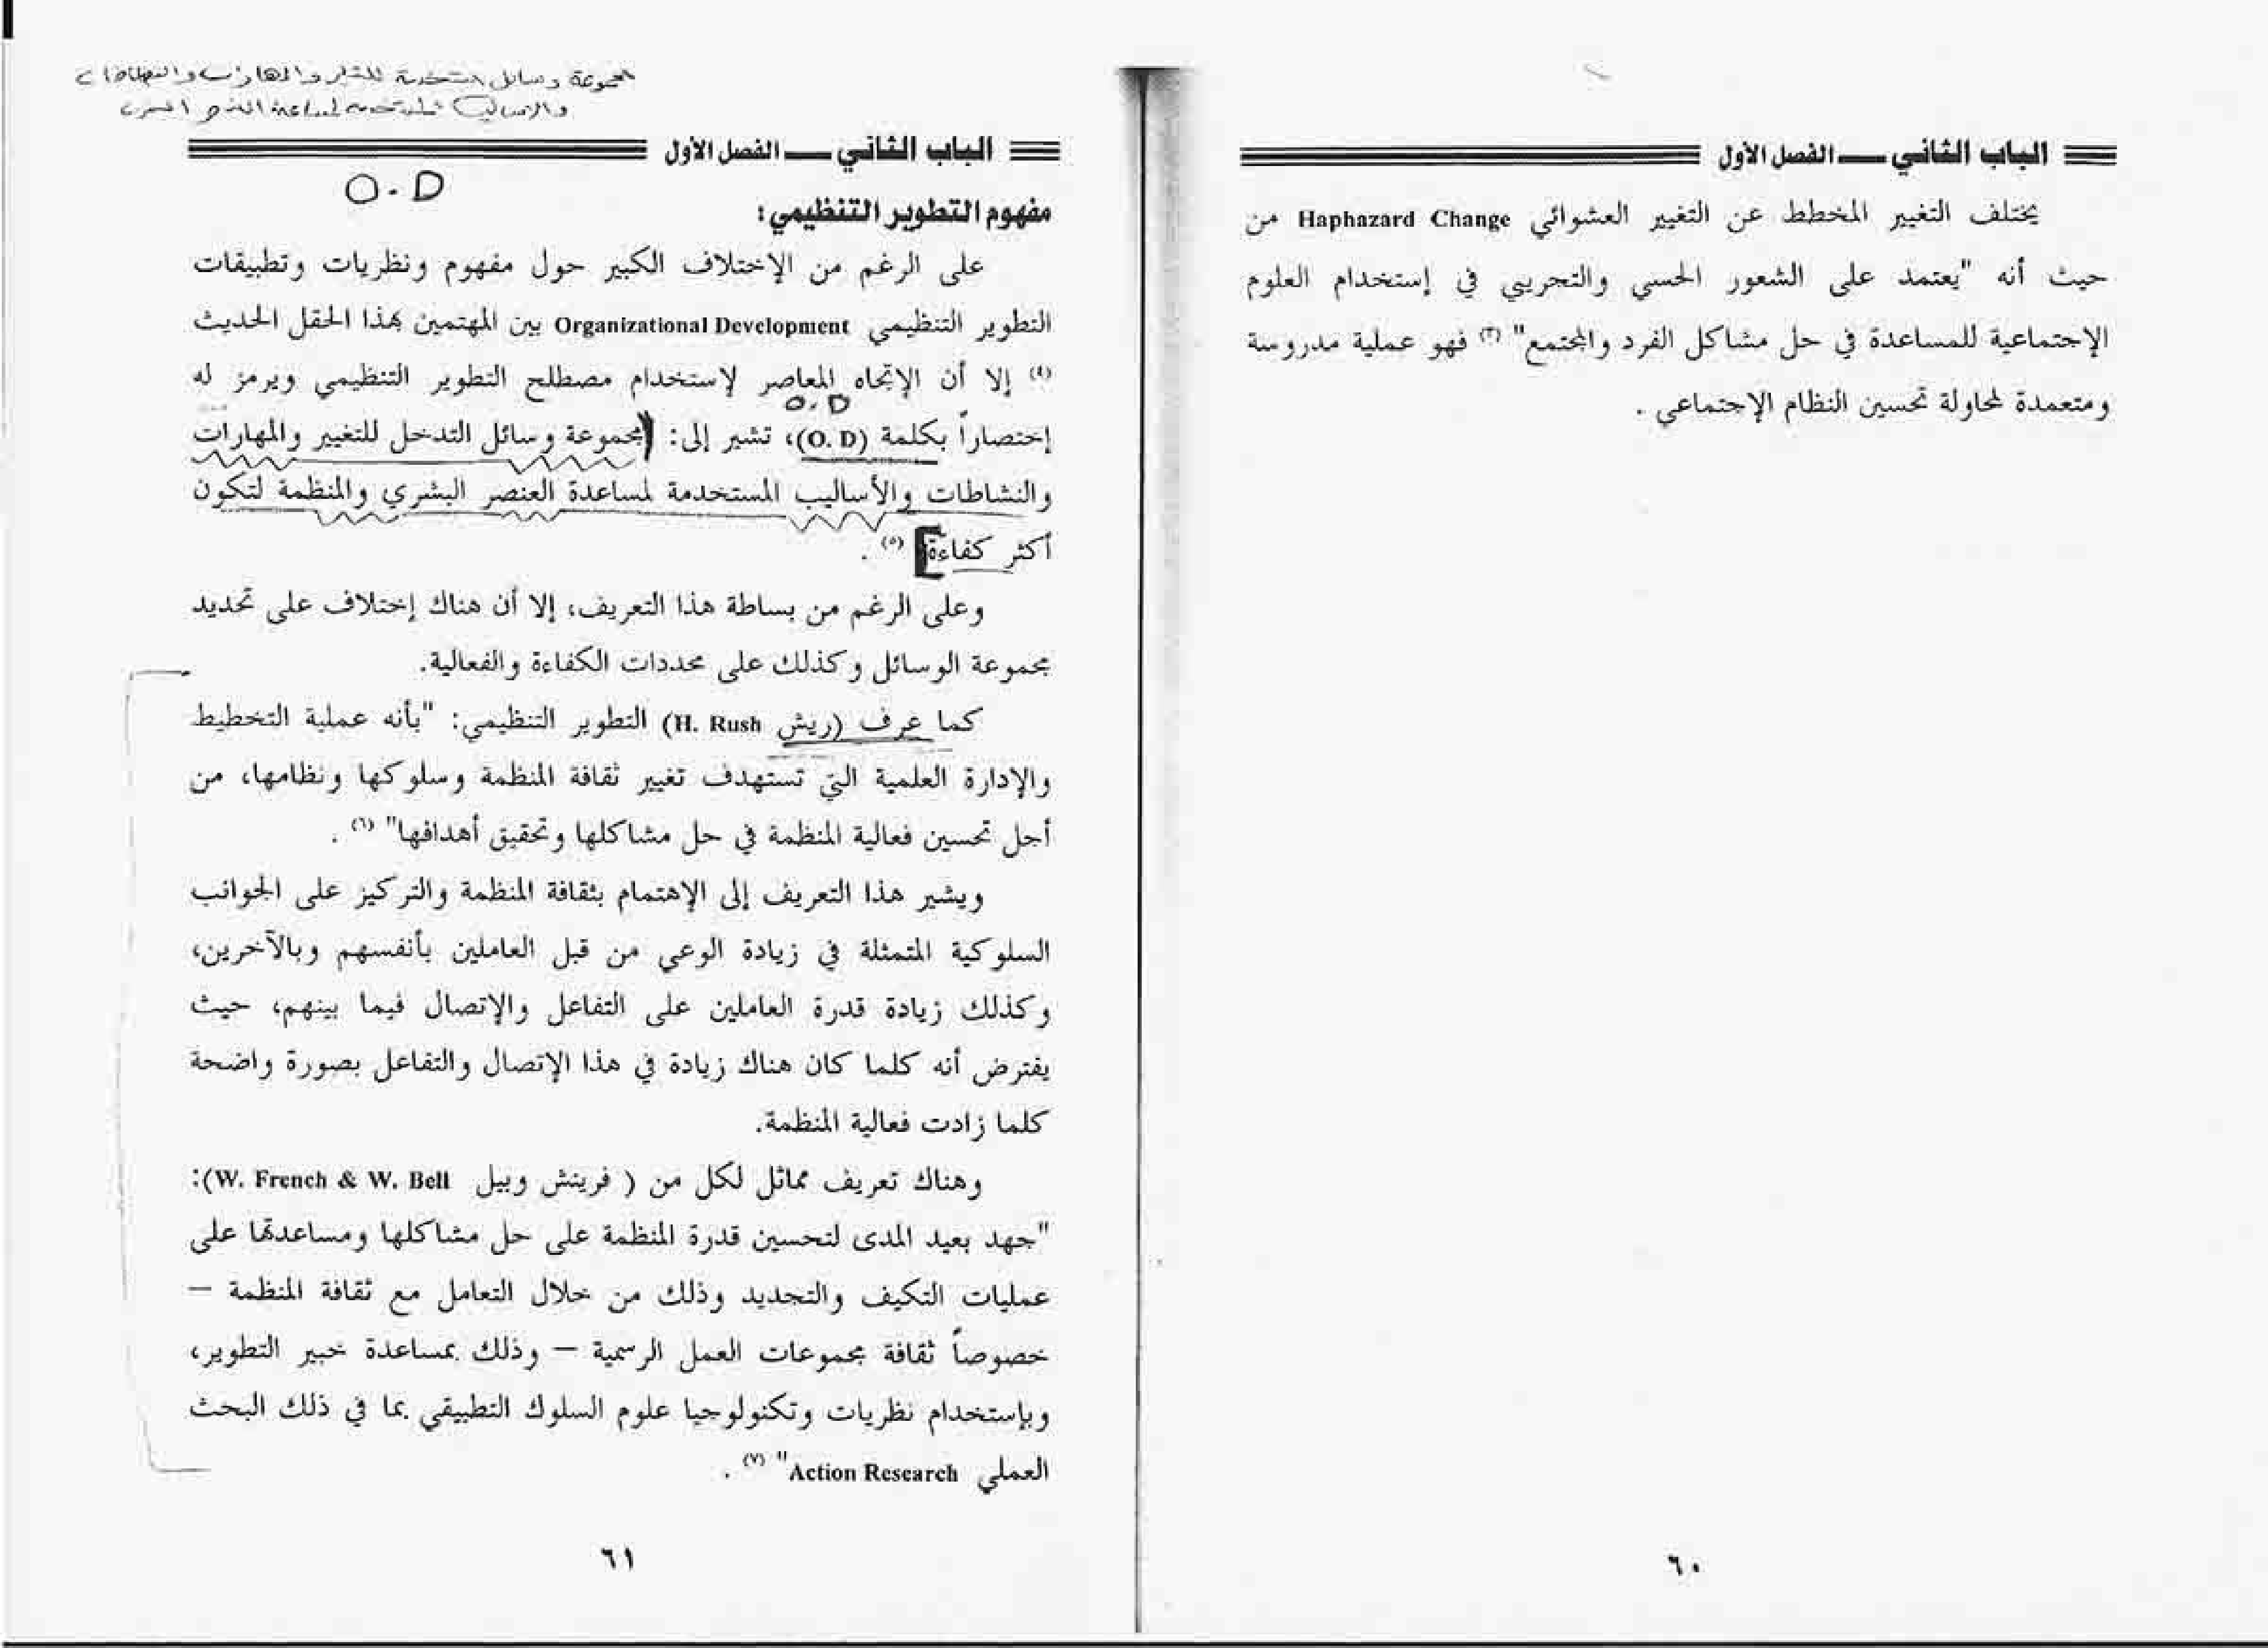 الباب الثاني — الفصل الأول
يختلف التغيير المخطط عن التغيير العشوائي Haphazard Change من
حيث أنه "يعتمد على الشعور الحسي والتجريبي في إستخدام العلوم
الإجتماعية للمساعدة في حل مشاكل الفرد والمجتمع" (٣) فهو عملية مدروسة
ومتعمدة لمحاولة تحسين النظام الإجتماعي .
٦٠
مجموعة وسائل
والأساليب
الباب الثاني — الفصل الأول
O.D
مفهوم التطوير التنظيمي:
على الرغم من الإختلاف الكبير حول مفهوم ونظريات وتطبيقات
التطوير التنظيمي Organizational Development بين المهتمين بهذا الحقل الحديث
(٤) إلا أن الإتجاه المعاصر لإستخدام مصطلح التطوير التنظيمي ويرمز له
O.D
إختصاراً بكلمة (O. D)، تشير إلى: "مجموعة وسائل التدخل للتغيير والمهارات
والنشاطات والأساليب المستخدمة لمساعدة العنصر البشري والمنظمة لتكون
أكثر كفاءة" (٥) .
وعلى الرغم من بساطة هذا التعريف، إلا أن هناك إختلاف على تحديد
مجموعة الوسائل وكذلك على محددات الكفاءة والفعالية.
كما عرف (ريش H. Rush) التطوير التنظيمي: "بأنه عملية التخطيط
والإدارة العلمية التي تستهدف تغيير ثقافة المنظمة وسلوكها ونظامها، من
أجل تحسين فعالية المنظمة في حل مشاكلها وتحقيق أهدافها" (٦) .
ويشير هذا التعريف إلى الإهتمام بثقافة المنظمة والتركيز على الجوانب
السلوكية المتمثلة في زيادة الوعي من قبل العاملين بأنفسهم وبالآخرين،
وكذلك زيادة قدرة العاملين على التفاعل والإتصال فيما بينهم، حيث
يفترض أنه كلما كان هناك زيادة في هذا الإتصال والتفاعل بصورة واضحة
كلما زادت فعالية المنظمة.
وهناك تعريف مماثل لكل من ( فرينش وبيل W. French & W. Bell):
"جهد بعيد المدى لتحسين قدرة المنظمة على حل مشاكلها ومساعدتها على
عمليات التكيف والتجديد وذلك من خلال التعامل مع ثقافة المنظمة –
خصوصاً ثقافة مجموعات العمل الرسمية – وذلك بمساعدة خبير التطوير،
وبإستخدام نظريات وتكنولوجيا علوم السلوك التطبيقي بما في ذلك البحث
العملي Action Research" (٧) .
٦١